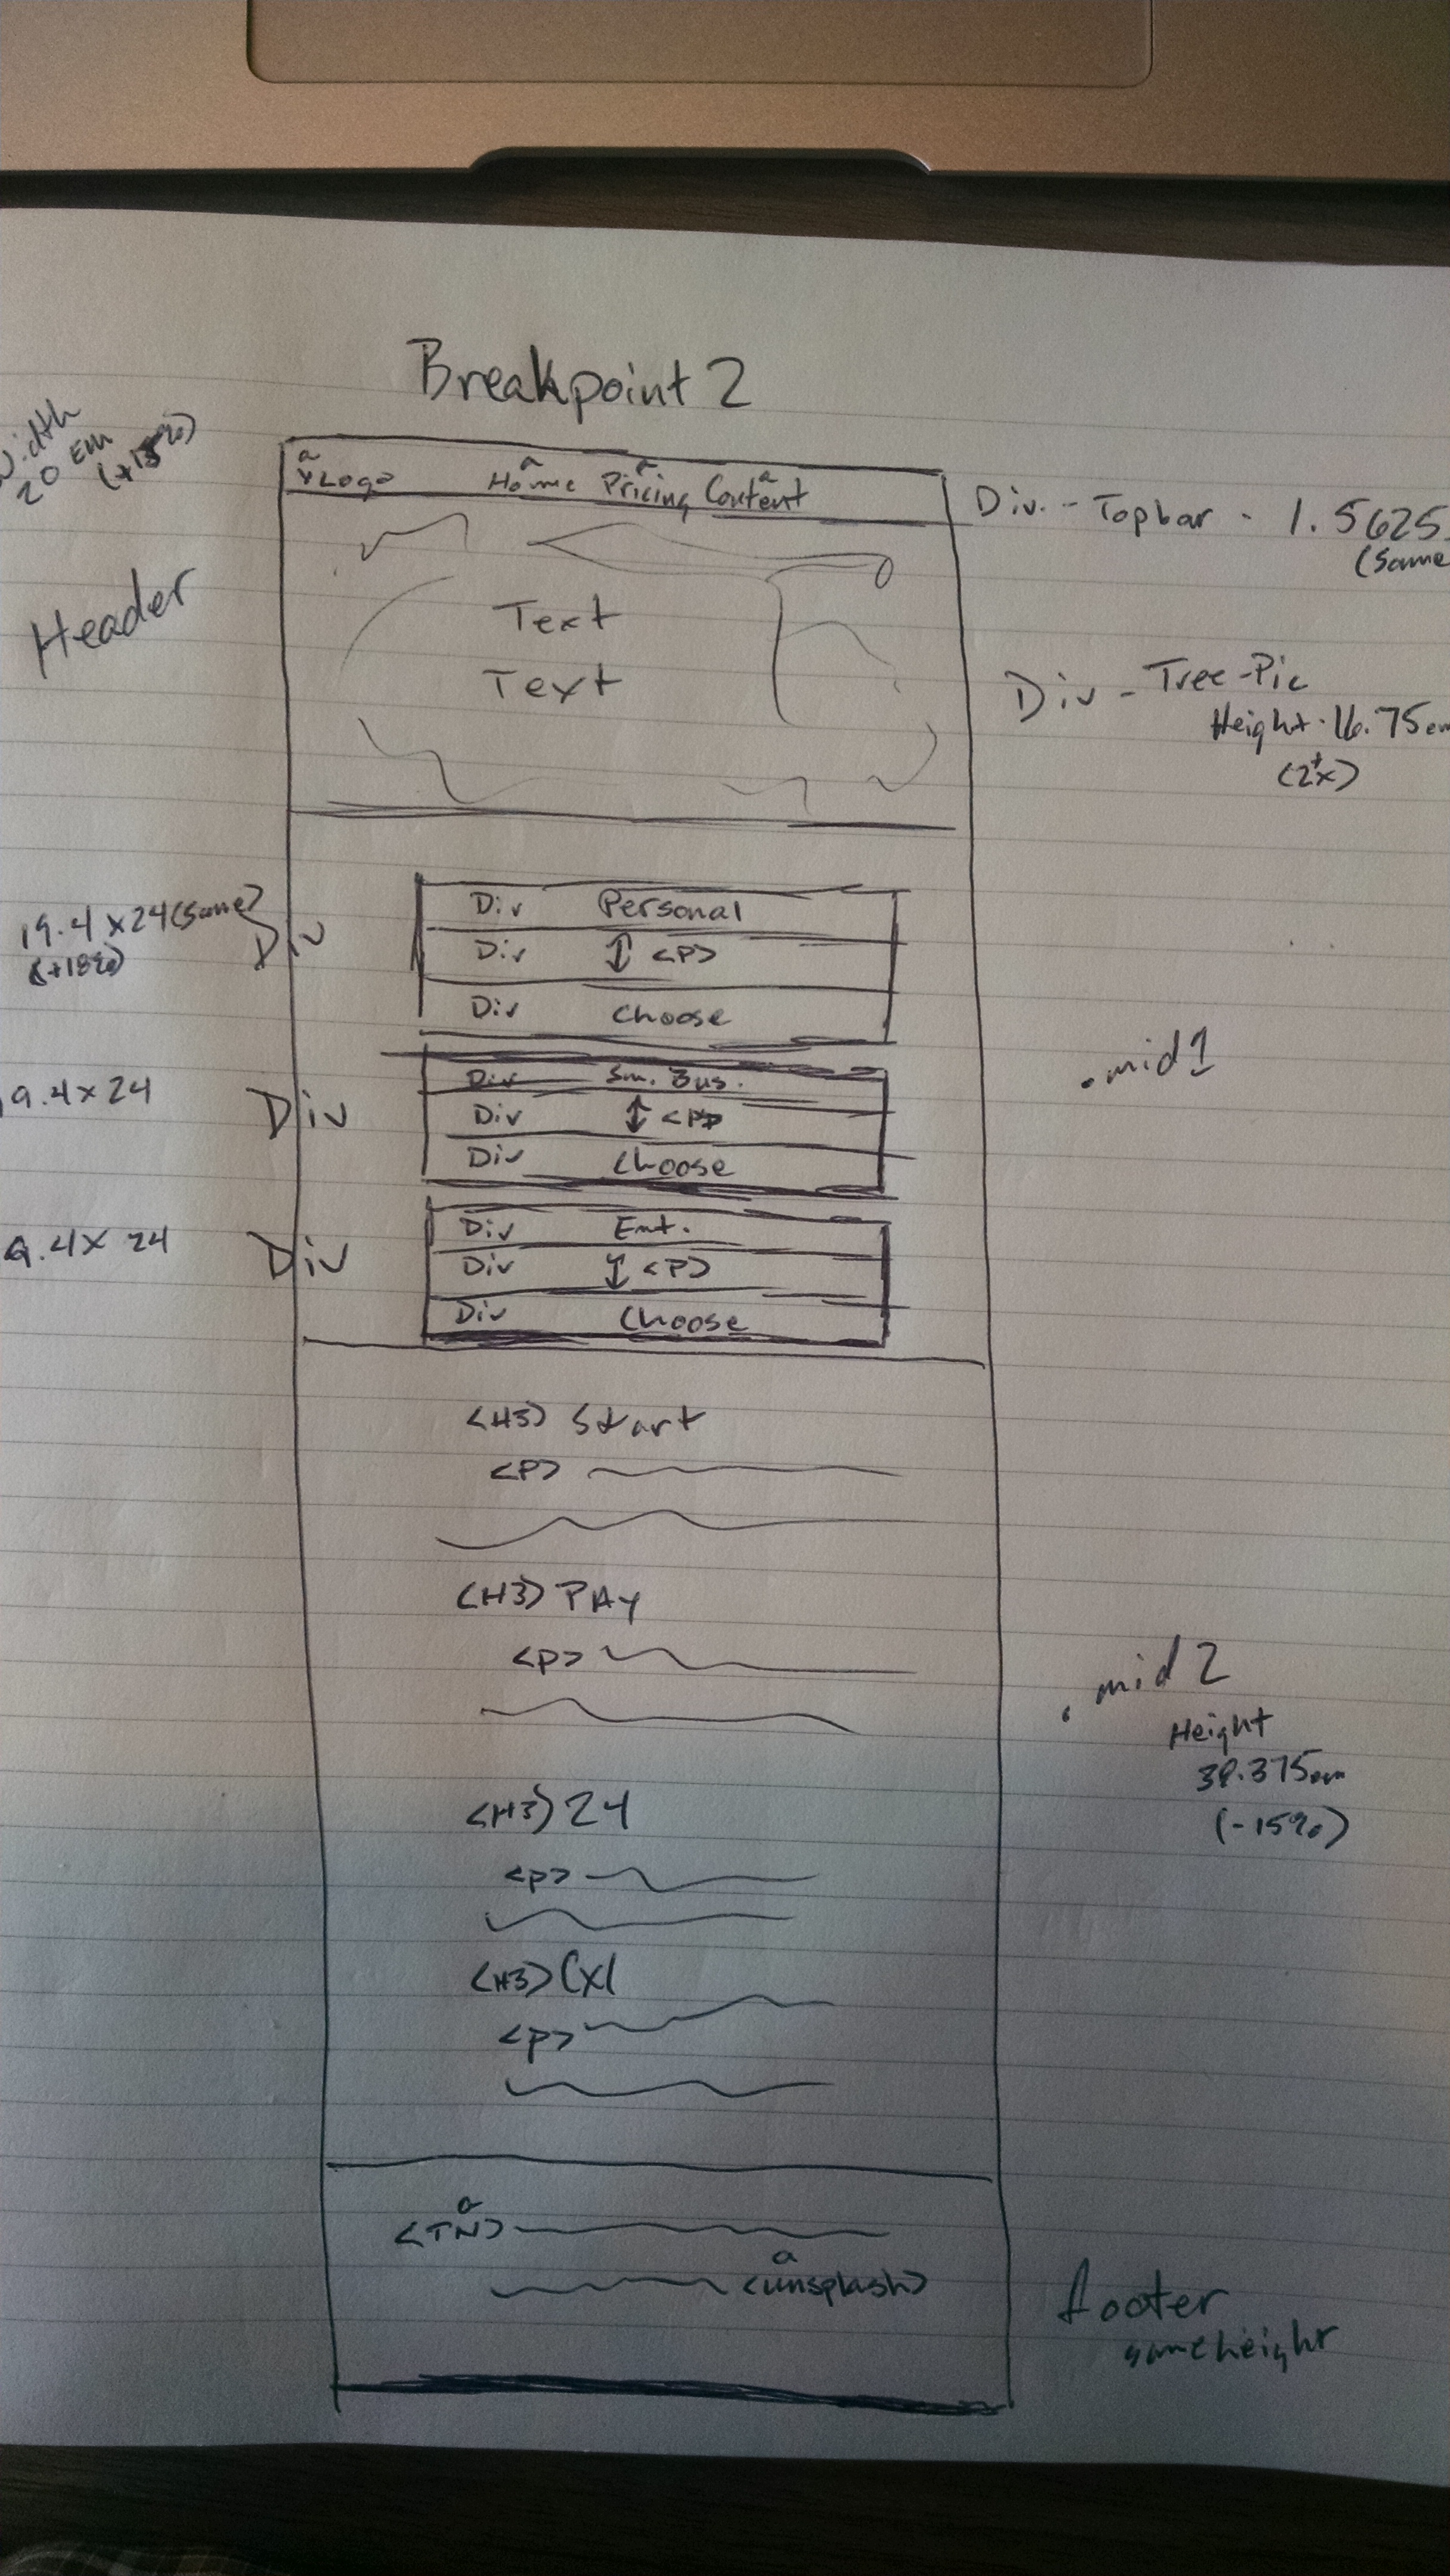 Breakpoint 2
Width
20 Em
a a a a
Logo Home Pricing Content
Div. - Topbar - 1.5625
(Same
Header
Text
Text
Div - Tree-Pic
Height. 16.75em
(2+x)
19.4 x 24 (Same)
(+18%)
Div
Div Personal
Div <P>
Div Choose
.mid1
9.4 x 24
Div
Div Sm. Bus.
Div <P>
Div Choose
9.4 x 24
Div
Div Ent.
Div <P>
Div Choose
<H3> Start
<P>
<H3> PAY
<p>
.mid 2
Height
(-15%)
<H3> 24
<p>
<H3> Cxl
<p>
a
<TN>
a
<unsplash>
footer
same height